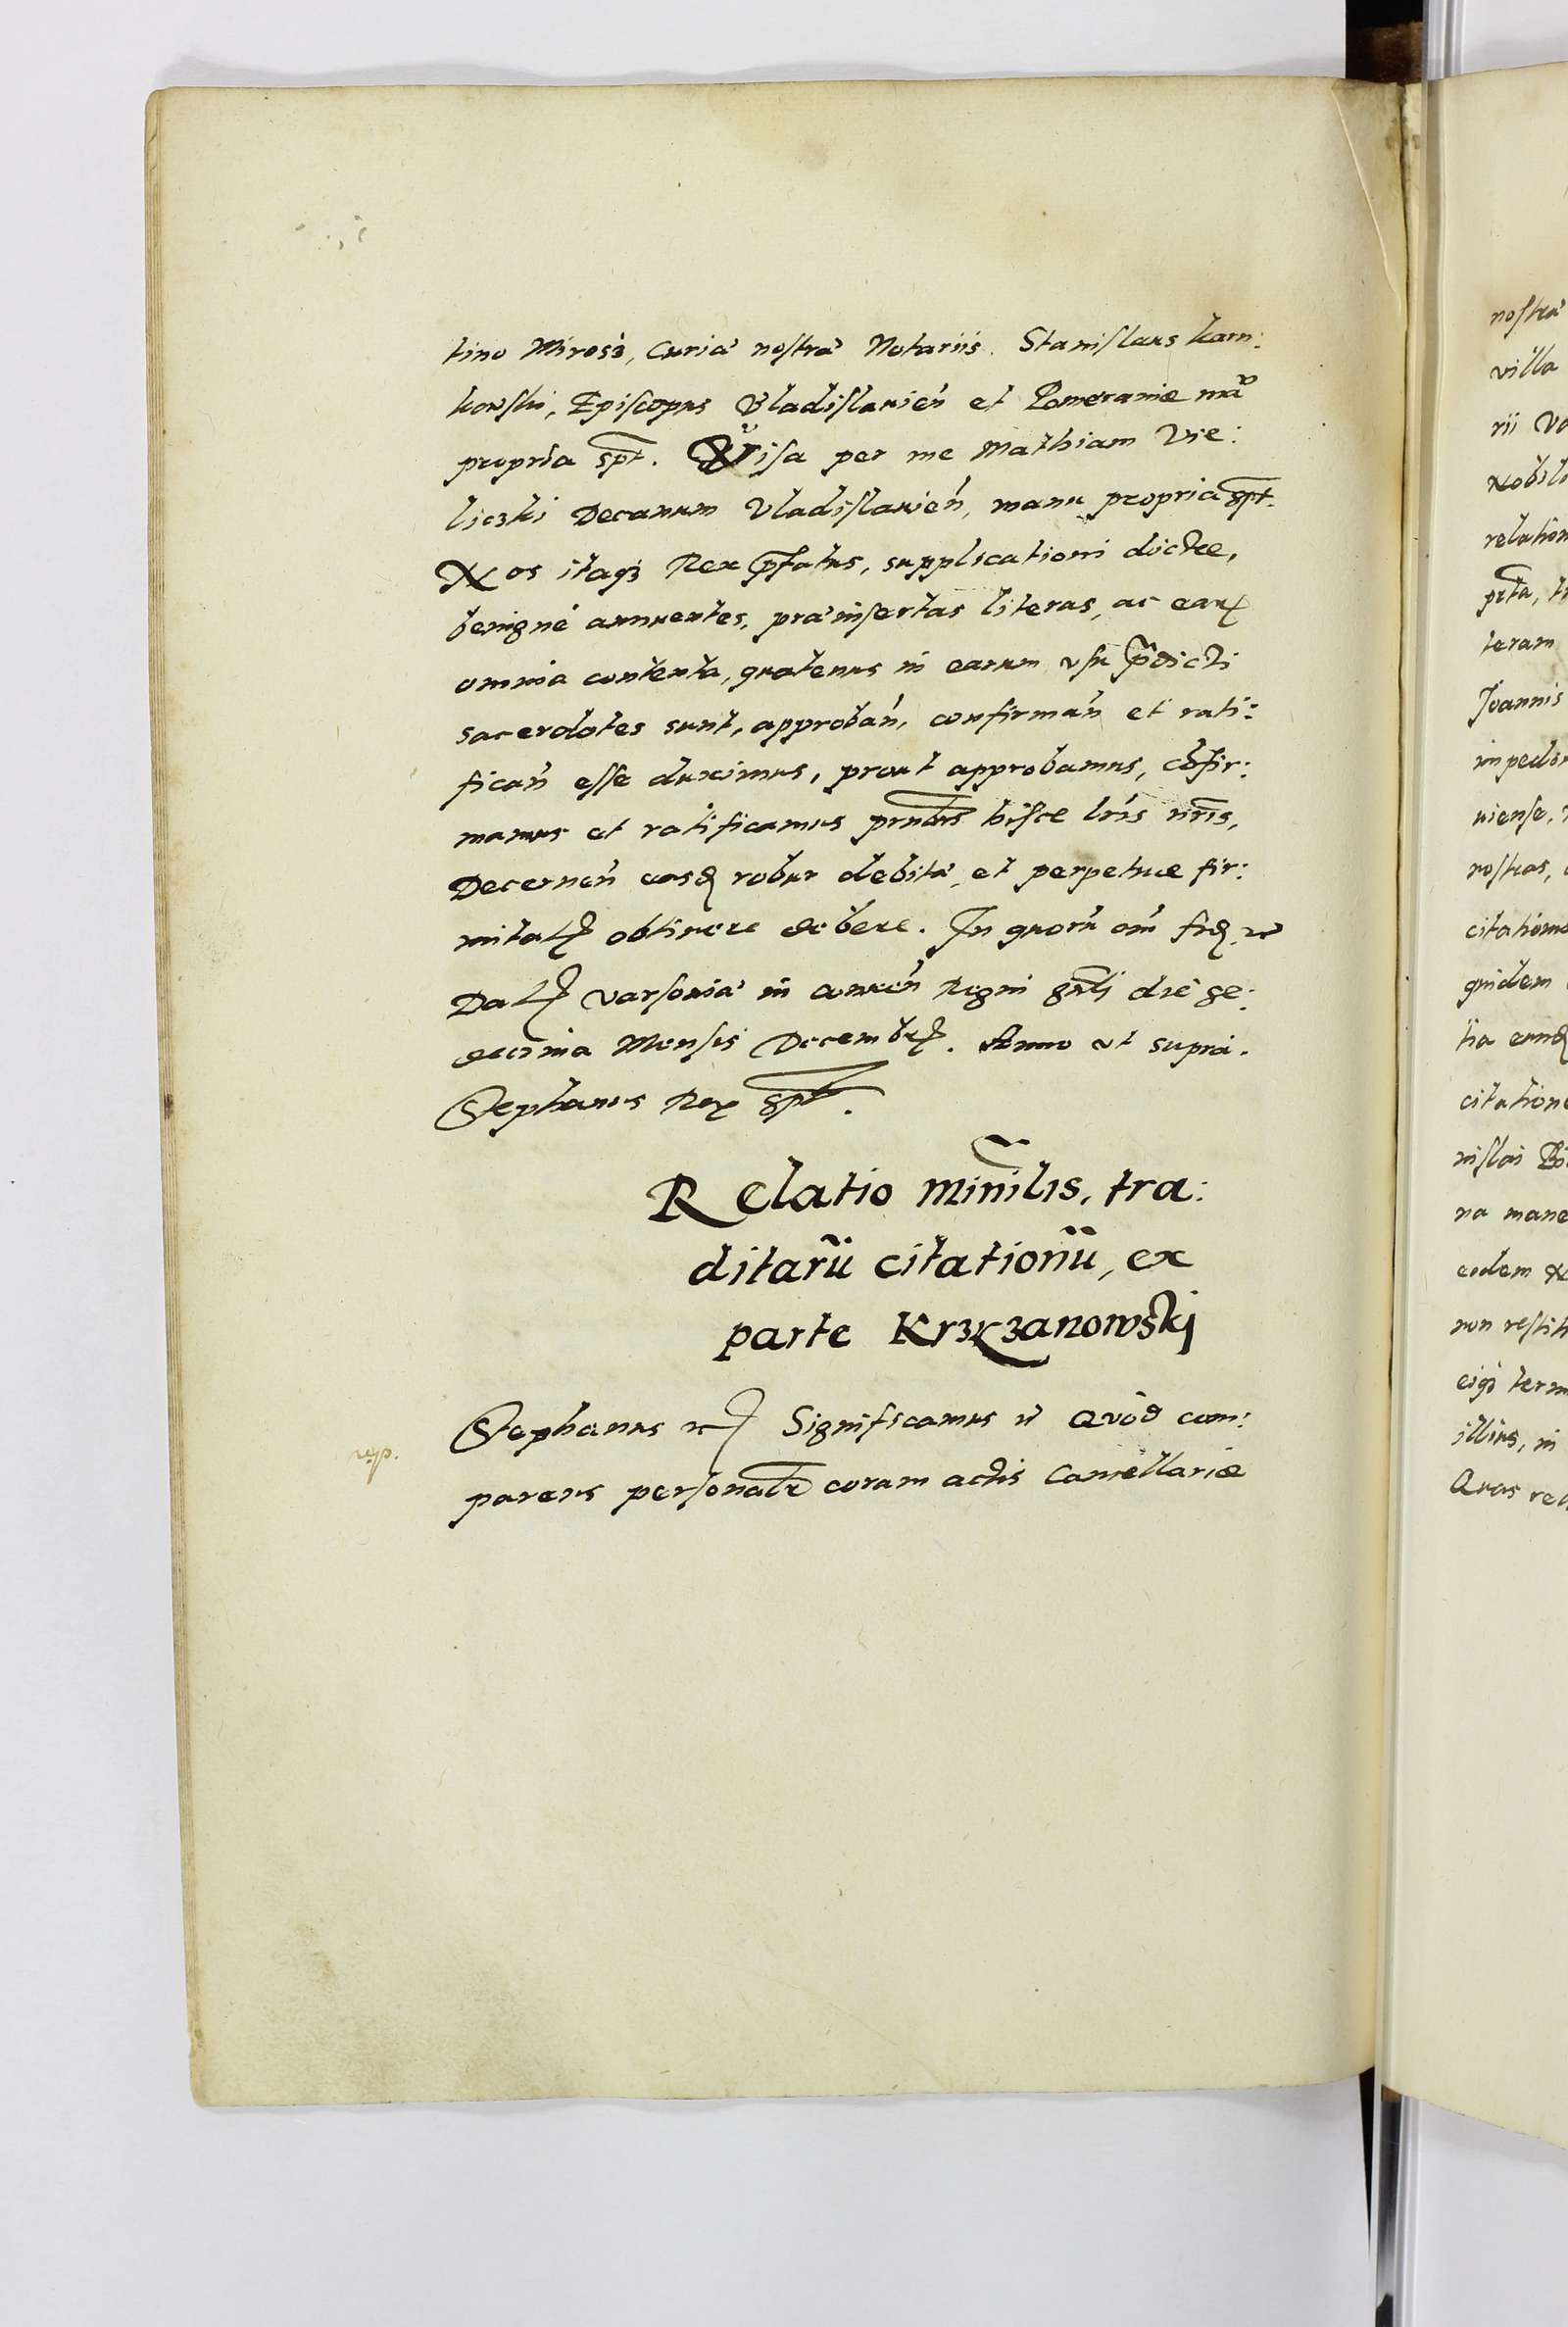 tino Mirosz, Curiæ nostræ Notariis. Stanislaus karn:
kowski, Episcopus Vladislauien et Pomeraniæ mã
propria spt. Visa per me Mathiam Vie:
liczki Decanum Vladislauien, manu propria spt.
Nos itaqȝ Rex pfatus, supplicationi dictæ,
benigné annuentes, præinsertas literas, ac earꝝ
omnia contenta, quatenus in earum vsu pdicti
sacerdotes sunt, approbań, confirmań et rati:
ficań esse duximus, prout approbamus, cõfir:
mamus et ratificamus pntibus hisce lris nris,
Decerneń easdꝫ robur debitæ et perpetuæ fir:
mitatꝭ obtinere debere. In quorũ om̃ fidꝫ etc
Datꝭ varsouiæ in conueń Regni gnli die ge:
decima Mensis Decembrꝭ. Anno vt supra.
Stephanus Rex spt.
Relatio Minilis, tra:
ditarũ citationũ, ex
parte Krzyczanowskj
Stephanus etc Significamus etc Quòd com:
parens personalr coram actis Cancellariæ
nostræ
villa
rii
Nobili
relation
prta,
teram
Joannis
impedi
uiense,
nostras,
citatione
quidem
tia eund
citatione
nislai
na mane
eodem
non restit
eiqȝ term
illius, in
Quas rel